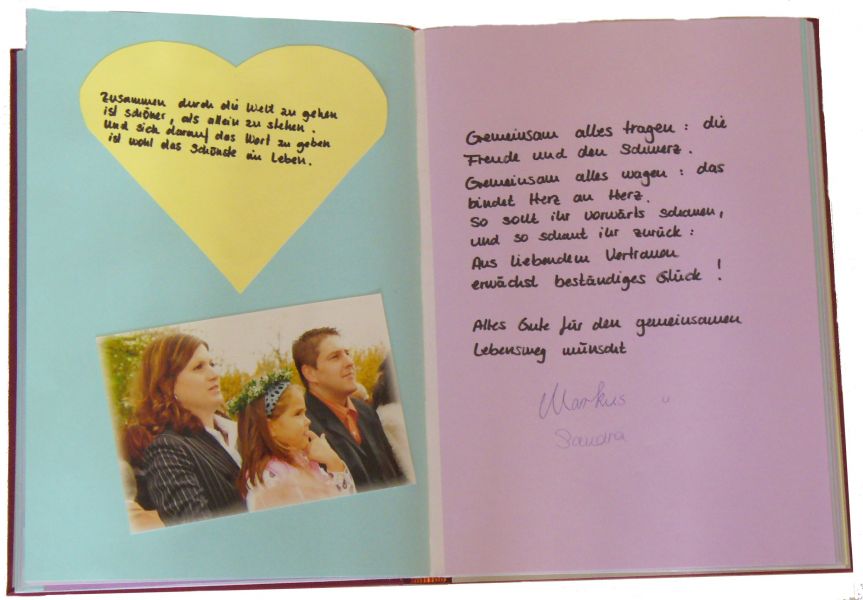 Zusammen durch die Welt zu gehen
ist schöner, als allein zu stehen.
Und sich darauf das Wort zu geben
ist wohl das Schönste im Leben.
Gemeinsam alles tragen: die
Freude und den Schmerz.
Gemeinsam alles wagen: das
bindet Herz an Herz.
So sollt ihr vorwärts schauen,
und so schaut ihr zurück:
Aus liebendem Vertrauen
erwächst beständiges Glück!
Alles Gute für den gemeinsamen
Lebensweg wünscht
Markus u
Sandra